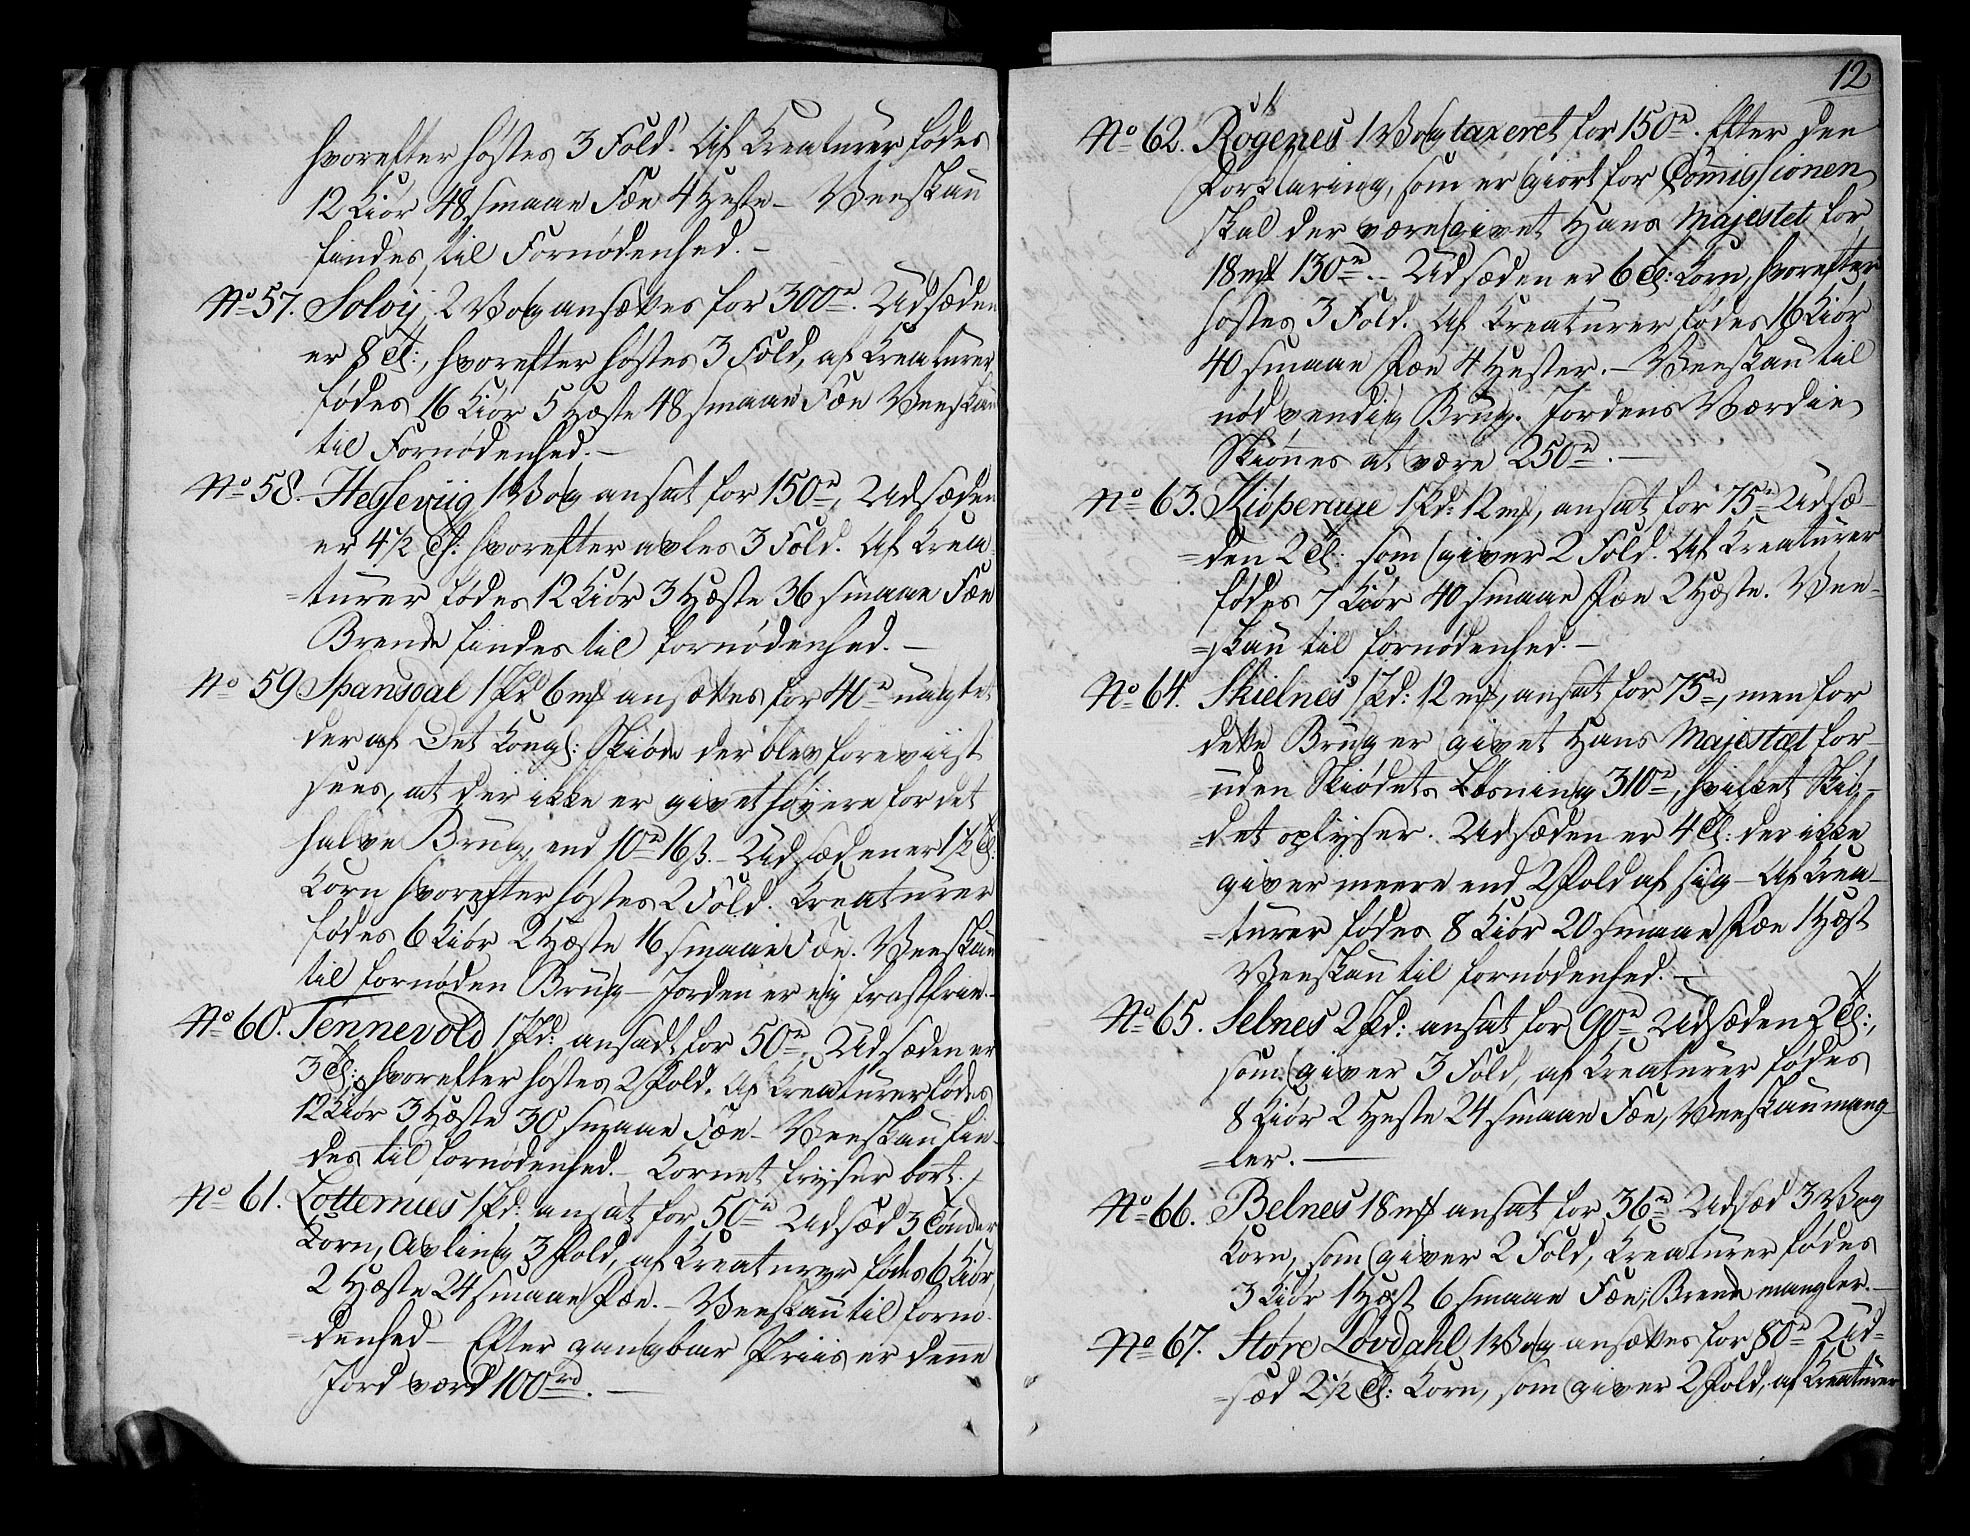 hvorefter höstes 3 Fold. Af Kreaturer födes
12 Kiör 48 smaae Fæe 4 Heste – Veeskau
findes til Fornødenhed. –
No 57. Solvij, 2 Vog ansættes for 300rd. Udsæden
er 8 Td:, hvorefter höstes 3 Fold, af Kreaturer
födes 16 Kiör 5 Hæste 48 smaae Fæe Veeskau
til Fornødenhed. –
No 58. Hessewiig 1 Vog ansat for 150rd, Udsæden
er 4 1/2 Td: hvorefter avles 3 Fold. Af Krea-
=turer födes 12 Kiör 3 Hæste 36 smaae Fæe
Brende findes til fornødenhed. –
No 59 Spansdal 1 Pd 6 mk ansættes for 40rd uagtet
der af Det Kongl: Skiøde der blev foreviist
sees, at der ikke er givet höyere for det
halve Brug, end 10rd 16 s. – Udsæden er 1 1/2 Td:
Korn hvorefter höstes 2 Fold. Kreaturer
födes 6 Kiör 2 Hæste 16 smaae Fæe. Veeskau
til fornøden Brug – Jorden er ej frostfrie. –
No 60. Tennevold 1 Pd: ansadt for 50rd, Udsæden er
3 Td: hvorefter höstes 2 Fold. Af Kreaturer födes
12 Kiör 3 Hæste 30 smaae Fæe – Veeskau fin-
=des til fornødenhed. – Kornet fryser bort.
No 61. Lotternæes 1 Pd: ansat for 50rd Udsæd 3 Tønder
Korn, Avling 3 Fold, af Kreaturer födes 6 Kiör
2 Hæste 24 smaae Fæe. – Veeskau til fornø-
=denhed – Efter gangbar Priis er denne
Jord værd 100rd. –
12
No 62. Rogenes 1 Vog taxeret for 150rd. Efter den
Forklaring, som er giort for Commissionen
skal der være givet Hans Majestet for
18 mk 130rd. – Udsæden er 6 Td: Korn, hvorefter
höstes 3 Fold. Af Kreaturer födes 16 Kiör
40 smaae Fæe 4 Hester. – Veeskau til
nødvendig Brug. Jordens Værdie
Skiönnes at være 250rd. –
No 63. Kiöperuxe 1 Pd: 12 mk, ansat for 75rd Udsæ-
=den 2 Td: som giver 2 Fold. Af Kreaturer
födes 7 Kiör 40 smaae Fæe 2 Hæste. Vee-
=skau til fornødenhed. –
No 64. Skielnes 1 Pd: 12 mk, ansat for 75rd, men for
dette Brug er givet Hans Majestæt for-
=uden Skiödets Lösning 310rd, hvilket Skiö-
=det oplyser. Udsæden er 4 Td: der ikke
giver meere end 2 Fold af sig – Af Krea-
=turer födes 8 Kiör 20 smaae Fæe 1 Hæst
Veeskau til fornødenhed. –
No 65. Selnes 2 Pd: ansat for 90rd Udsæden 2 Td:,
som giver 3 Fold, af Kreaturer födes
8 Kiör 2 Heste 24 smaae Fæe, Veeskau mang-
=ler. –
No 66. Belnes 18 mk ansat for 36rd Udsæd 3 Vog
Korn, som giver 2 Fold, Kreaturer födes
3 Kiör 1 Hæst 6 smaae Fæe, Brende mangler. –
No 67. Støre Lovdahl 1 Vog ansættes for 80rd Ud-
=sæd 2 1/2 Td: Korn, som giver 2 Fold, af Kreaturer